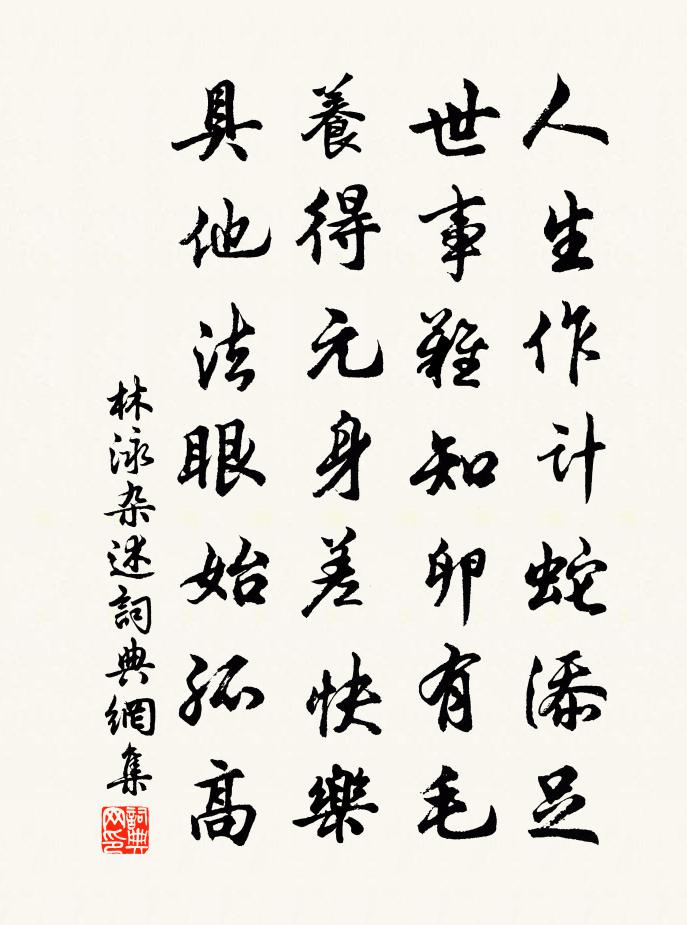 人生作計蛇添足
世事難知卵有毛
養得元身差快樂
具他法眼始孤高
林泳杂述詞典網集
詞典网印